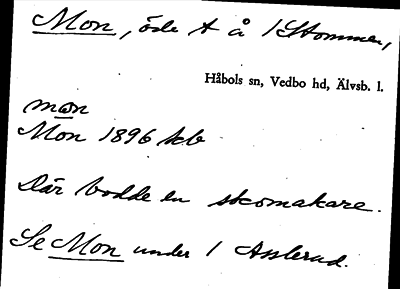 Mon, öde t å 1 Stommen,
Håbols sn, Vedbo hd, Älvsb. l.
mωn
Mon 1896 kb
Där bodde en skomakare.
Se Mon under 1 Asslerud.